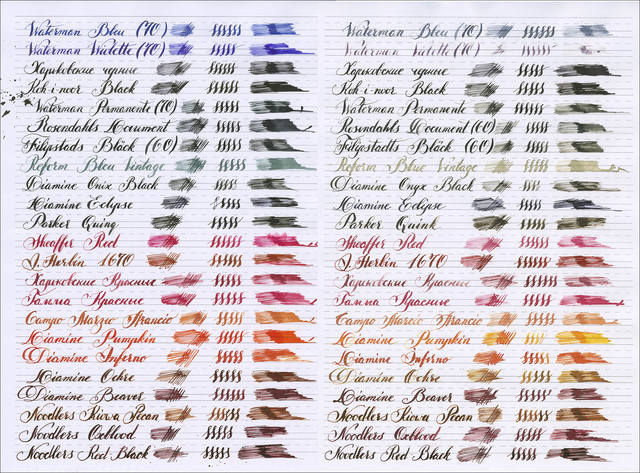 Waterman Bleu (70)
Waterman Violette (70)
Харьковские черние
Koh-i-noor Black
Waterman Permanente (70)
Rosendahls Document
Filipstads Bläck (60)
Reform Bleu Vintage
Diamine Onix Black
Diamine Eclipse
Parker Quing
Sheaffer Red
J. Herbin 1670
Харьковские Красные
Гамма Красные
Campo Marzio Arancio
Diamine Pumpkin
Diamine Inferno
Diamine Ochre
Diamine Beaver
Noodlers Kiowa Pecan
Noodlers Oxblood
Noodlers Red Black
Waterman Bleu (70)
Waterman Violette (70)
Харьковские черние
Koh-i-noor Black
Waterman Permanente
Rosendahls Document (60)
Filipstadts Bläck (60)
Reform Blue Vintage
Diamine Onyx Black
Diamine Eclipse
Parker Quink
Sheaffer Red
J. Herbin 1670
Харьковские Красные
Гамма Красные
Campo Marcio Arancio
Diamine Pumpkin
Diamine Inferno
Diamine Ochre
Diamine Beaver
Noodlers Kiowa Pecan
Noodlers Oxblood
Noodlers Red Black